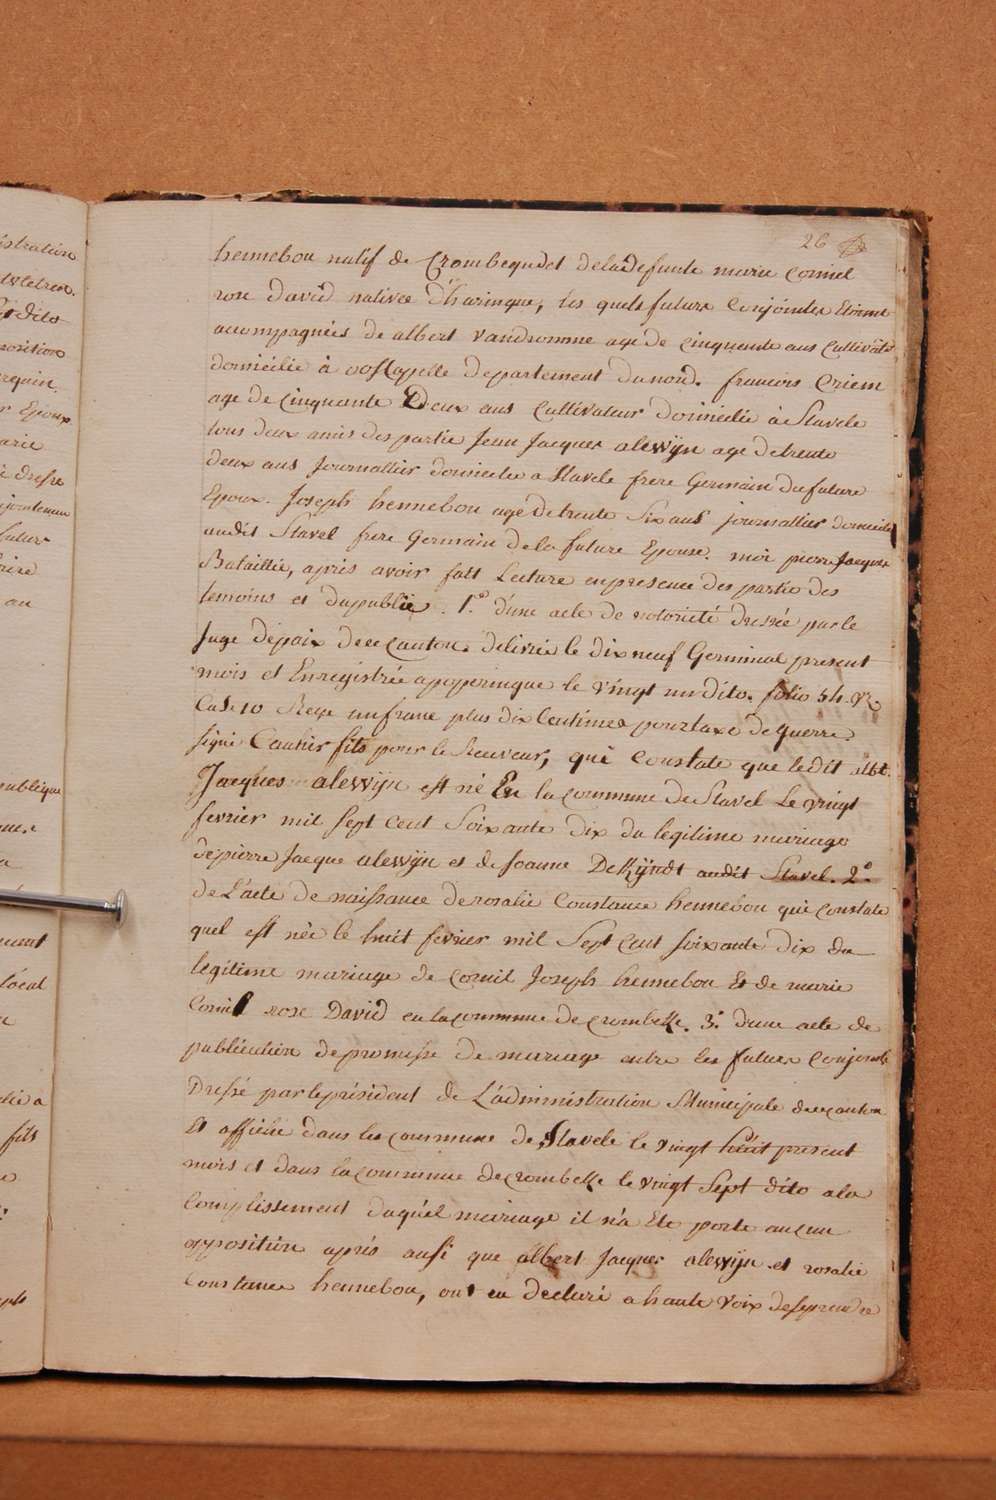 26
hennebou natif de Crombeque et dela defunte marie corniel
rose david native d'haringue, les quels future conjointes Etoient
accompagnies de albert vandromme age de cinquante ans Cultivat
domicilie à oostcapelle departement du nord. francois Criem
age de cinquante Deux ans Cultivateur domicilie à Stavele
tous deux amis des partie Jean Jacques alewijn age de trente
deux ans Journallier domicilie a Stavele frere Germain du future
Epoux. Joseph hennebou age de trente Six ans journallier domicilie
audit Stavel frere Germain de la future Epouse. moi pierre Jacques
Bataillie, aprés avoir fait Lecture en presence des partie des
temoins et du publie. 1.º d'une acte de notorieté dressée par le
Juge depaix de ce Canton. delivrée le dix neuf Germinal present
mois et Enregistrée a poperingue le vingt un dito. folio 54. vº
Case 10 Reçu un franc plus dix Centimes pour taxe de guerre.
signé Cauhir fils pour le Receveur, qui constate que ledit albt.
Jacques alewijn est né En la commune de Stavel Le vingt
fevrier mil sept cent Soixante dix du legitime mariage
de pierre Jacque alewijn et de Joanne DeKijndt audit Stavel. 2º.
de L'acte de naissance de rosalie Constance hennebou qui constate
quel est née le huit fevrier mil Sept Cent soixante dix du
legitime mariage de Cornil Joseph hennebou Et de marie
Cornil rose David en la commune de crombeke. 3.º d'une acte de
publication de promesse de mariage entre les future conjoints
Dressé par le président de L'administration Municipale de ce canton
Et affiche dans les commune de Stavele le vingt huit present
mois et dans la commune de crombeke le vingt Sept dito a la
Complissement duquél mariage il n'a Ete porte aucun
opposition aprés ausi que albert Jacques alewijn et rosalie
Constance hennebou, ont eu declaré a haute voix de se prendre